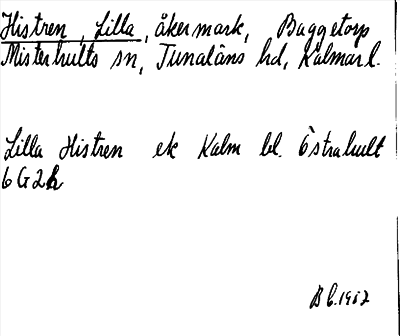 Histren, Lilla, åkermark, Baggetorp
Misterhults sn, Tunaläns hd, Kalmar l.
Lilla Histren ek Kalm bl. Östrahult
6 G 2 h
B b. 1982